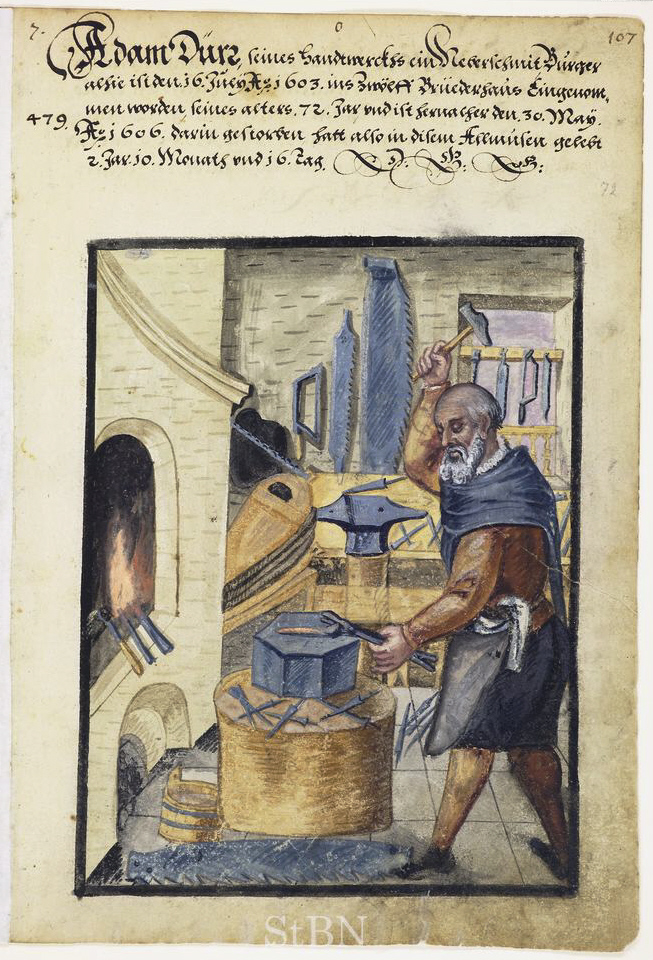 7. 0 107
Adam Dürr, seines Handtwerckhs ein Neberschmit Burger
alhie ist den. 16. July Aº 1603. ins Zwölff Brüederhaus Eingenom¬
men worden seines alters. 72. Jar vnd ist hernacher den. 30. May.
479. Aº 1606. darin gestorben hatt also in disem Allmusen gelebt
2. Jar. 10. Monath vnd 16. Tag.
72
StBN